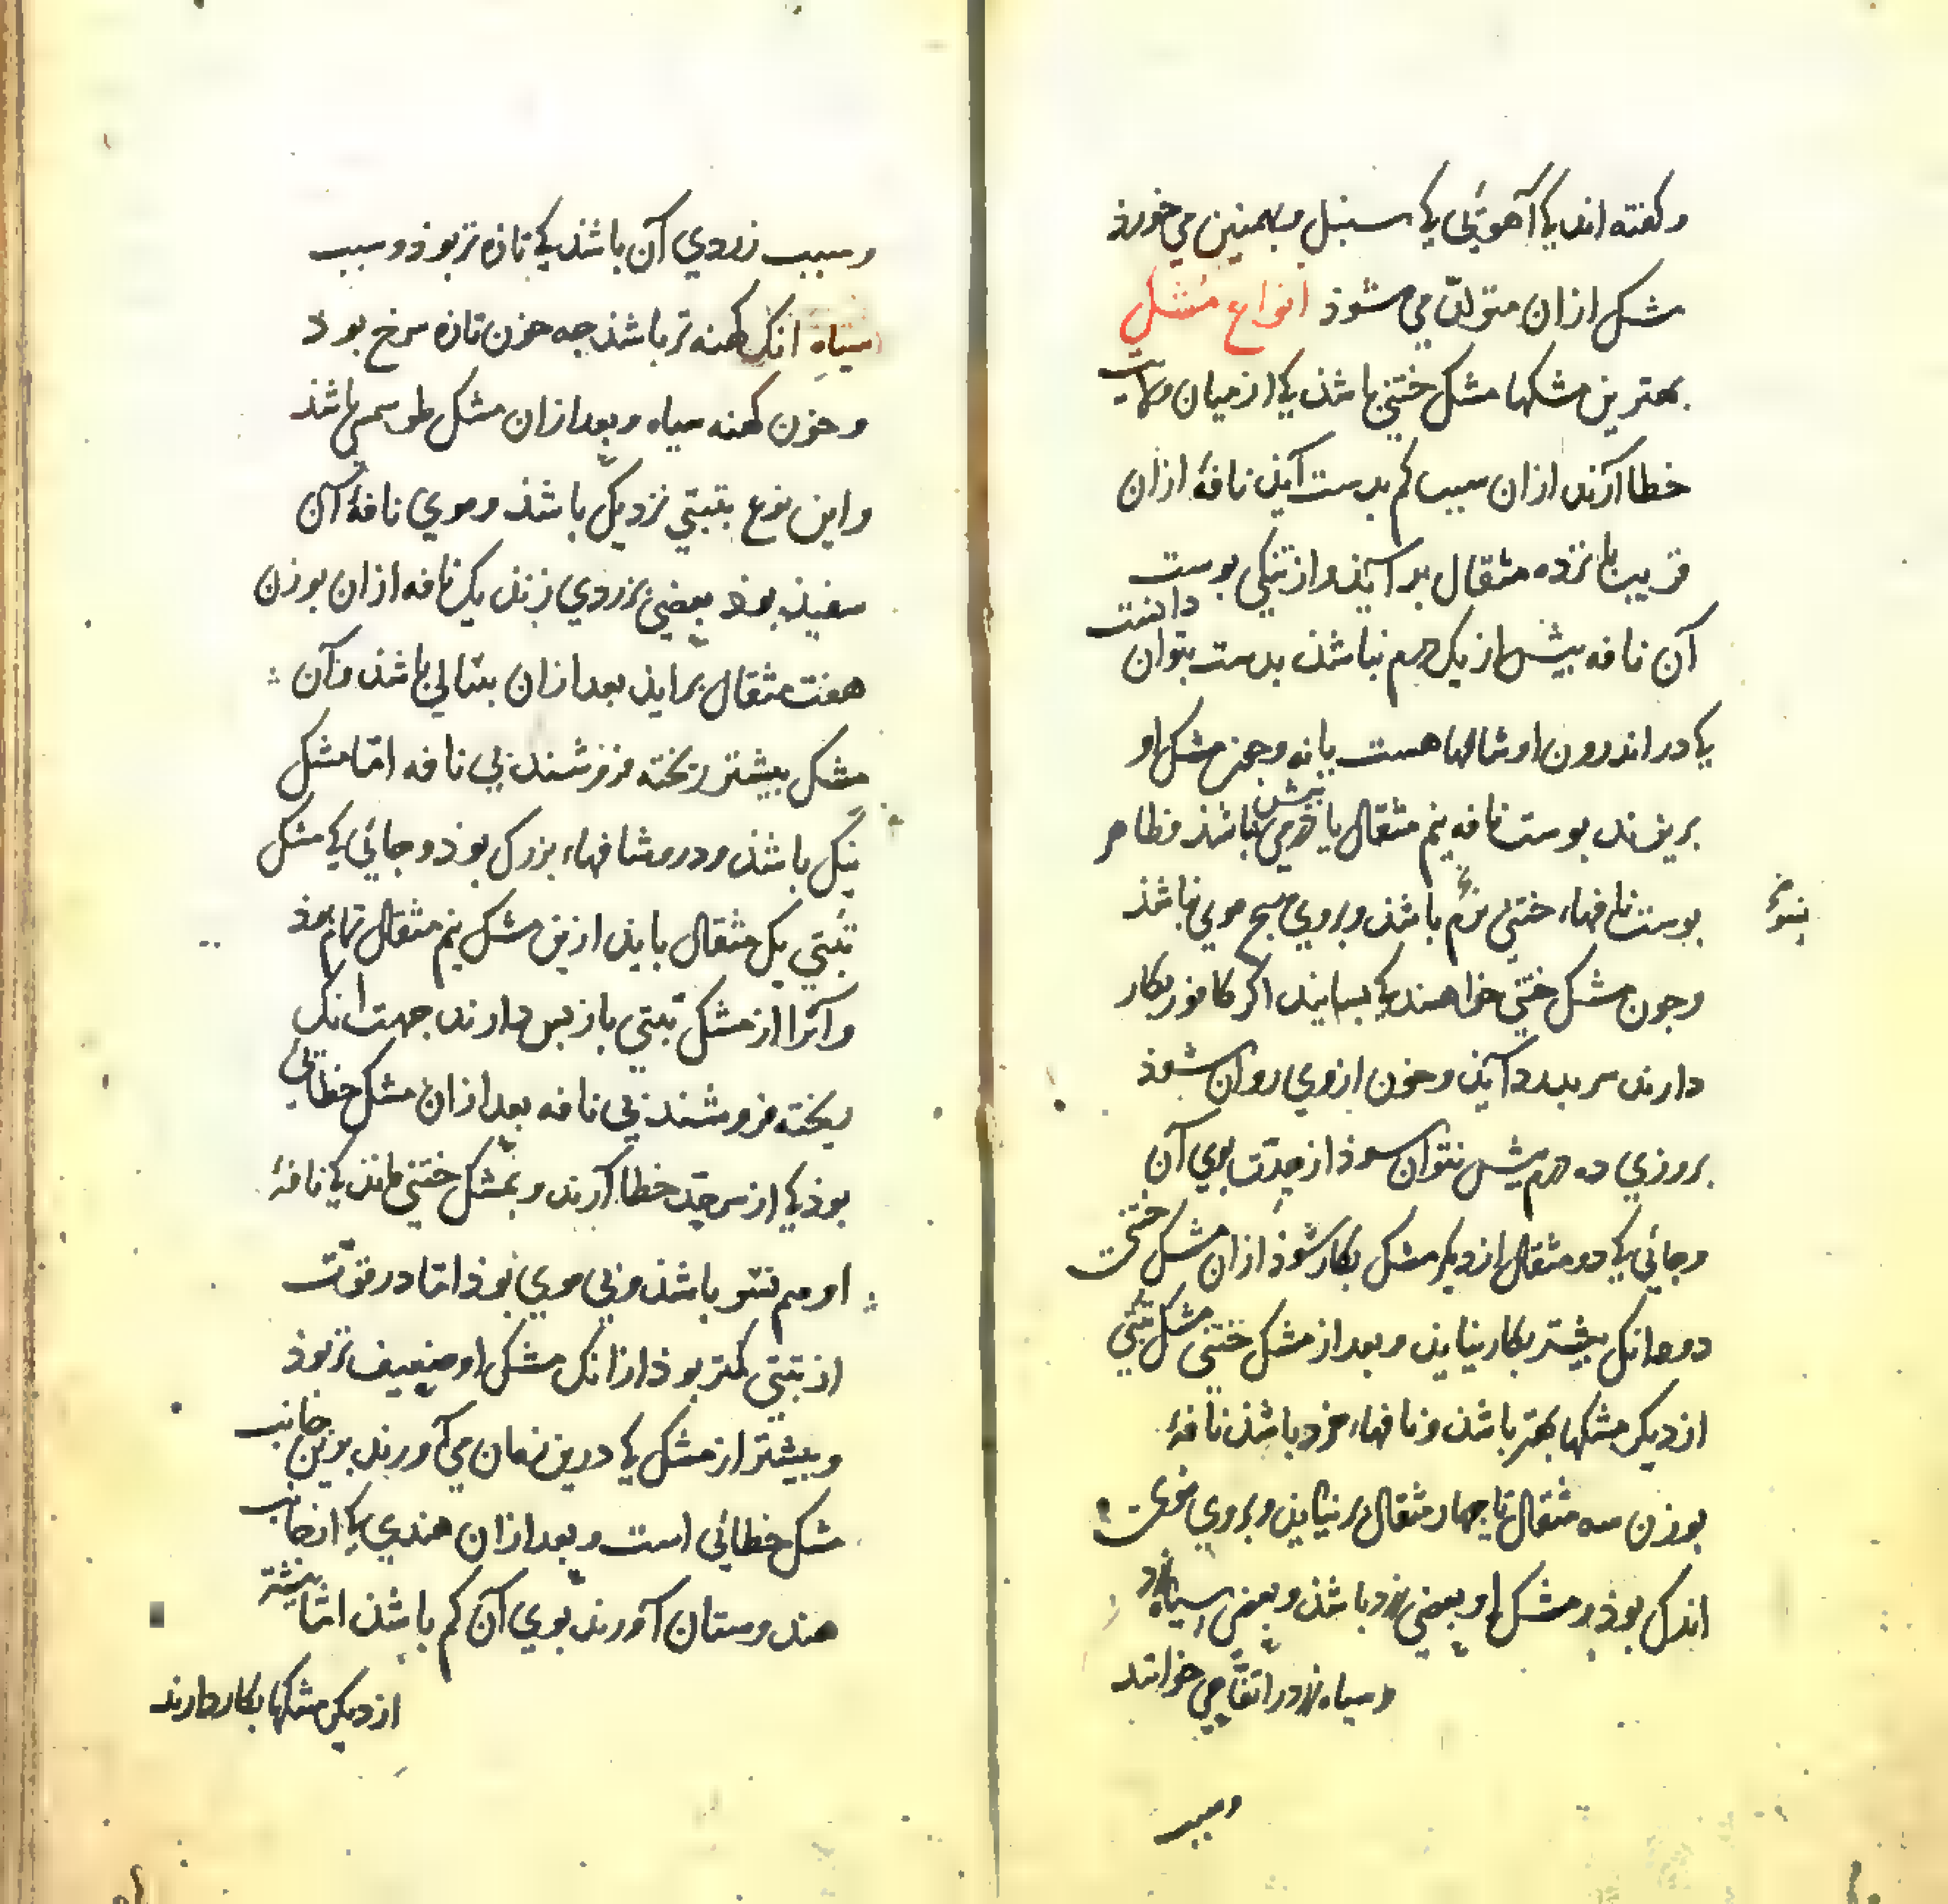 و گفته اند کی آهوئی کی سنبل و بهمنین می خورد
مشک ازان متولد می شوذ انواع مشک
بهترین مشکها مشک ختنی باشذ کی از میان ولایت
خطا آرند ازان سبب کم بدست آیذ نافهٔ ازان
قریب پانزده مثقال بر آیذ و از تنکی بوست
آن نافه بیش از یک درم نباشذ بدست بتوان دانست
کی در اندرون او شالها هست یا نه و جون مشک او
بریزند بوست نافه نیم مثقال یا درمی بیش نباشذ و ظاهر
بوست نافهاء ختنی نرم باشذ و بروی هیچ موی نباشذ
و جون مشک ختنی خواهند کی بسایند اکر کافور بکار
دارند سر بدرد آیذ و خون از وی روان شوذ
بروزی ده درم بیش نتوان سوذ از حدّت بوی آن
و جائی کی دو مثقال از دیکر مشک بکار شوذ ازان مشک ختنی
دو دانک بیشتر بکار نیایذ و بعد از مشک ختنی مشک تبتی
از دیکر مشکها بهتر باشذ و نافهاء خرد باشذ نافهٔ
بوزن سه مثقال تا جهار مثقال بر نیایذ و بروی موی
اندک بوذ و مشک او بعضی زرد باشذ و بعضی سیاه زرد
و سیاه زرد را می خوانند
و سبب
و سبب زردی آن باشذ کی تازه تر بوذ و سبب
سیاه انک کهنه تر باشذ جه خون تازه سرخ بوذ
و خون کهنه سیاه و بعد ازان مشک طوسمی باشذ
و این نوع بتبتی نزدیک باشذ و موی نافهٔ آن
سفیذ بوذ بعضی بزردی زند یک نافه ازان بوزن
هفت مثقال بر ایذ بعد ازان باشذ و آن
مشک بیشتر ریخته فروشند بی نافه امّا مشک
نیک باشذ و در و شافهاء بزرک بوذ و جائی کی مشک
تبتی یک مثقال بایذ ازین مشک نیم مثقال تمام بوذ
و آنرا از مشک تبتی باز بس دارند جهت انک
ریخته فروشند بی نافه بعد ازان مشک خطائی
بوذ کی از سرحدّ خطا آرند و بمشک ختنی مانذ کی نافهٔ
او هم تنو باشذ و بی موی بوذ امّا در قوّت
از تبتی کمتر بوذ ازانک مشک او ضعیف تر بوذ
و بیشتر از مشک کی درین زمان می آورند برین جانب
مشک خطائی است و بعد ازان هندی کی از جانب
هندوستان آورند بوی آن کم باشذ امّا بیشتر
از دیکر مشکها بکار دارند